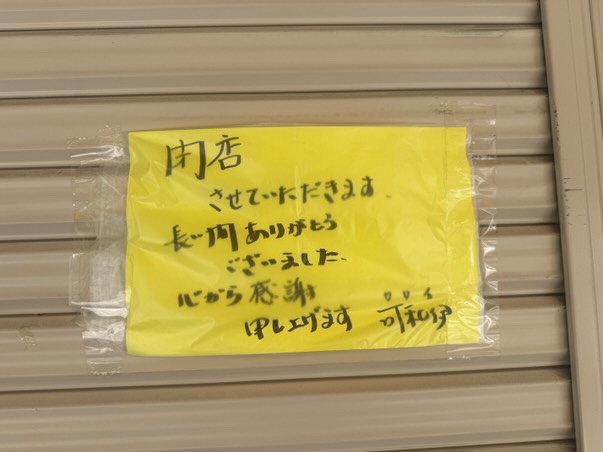 閉店
させていただきます
長い間ありがとう
ございました.
心から感謝
申し上げます 可和伊